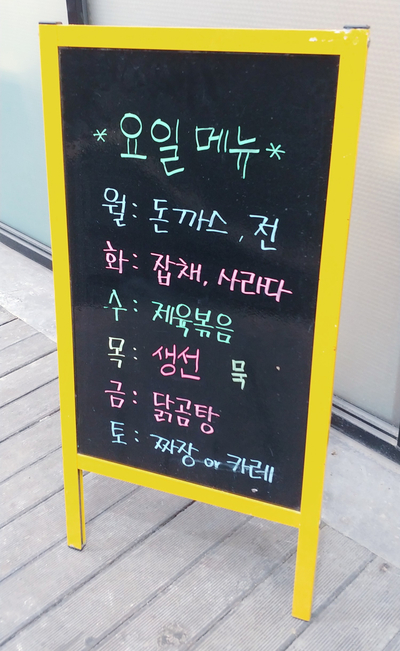 * 요일 메뉴 *
월: 돈까스, 전
화: 잡채, 사라다
수: 제육볶음
목: 생선 묵
금: 닭곰탕
토: 짜장 or 카레